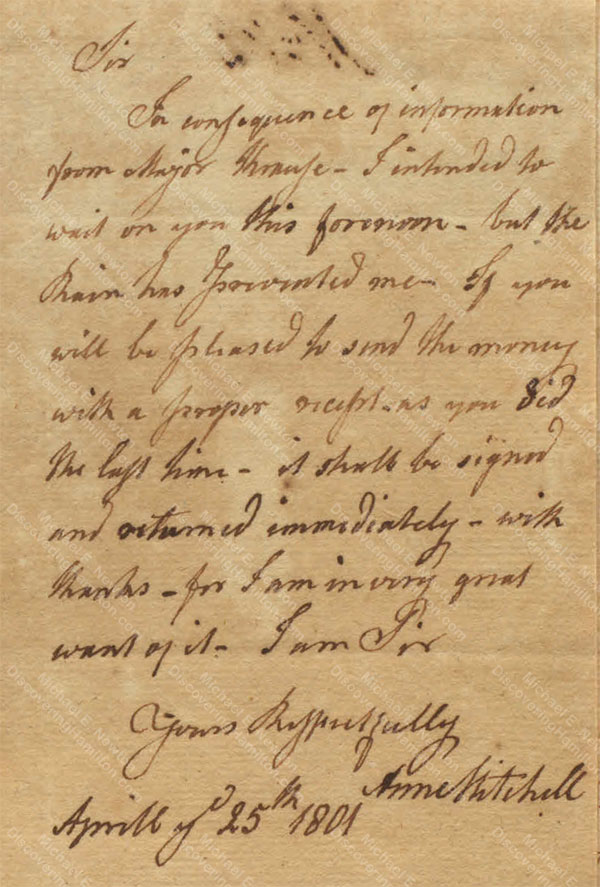 Sir
In consequence of information
from Major Krause - I intended to
wait on you this forenoon - but the
Rain has prevented me - If you
will be pleased to send the money
with a proper recept - as you did
the last time - it shall be signed
and returned immediately - with
thanks - for I am in very great
want of it - I am Sir
Yours Respectfully
Anne Mitchell
Aprill ye 25th 1801